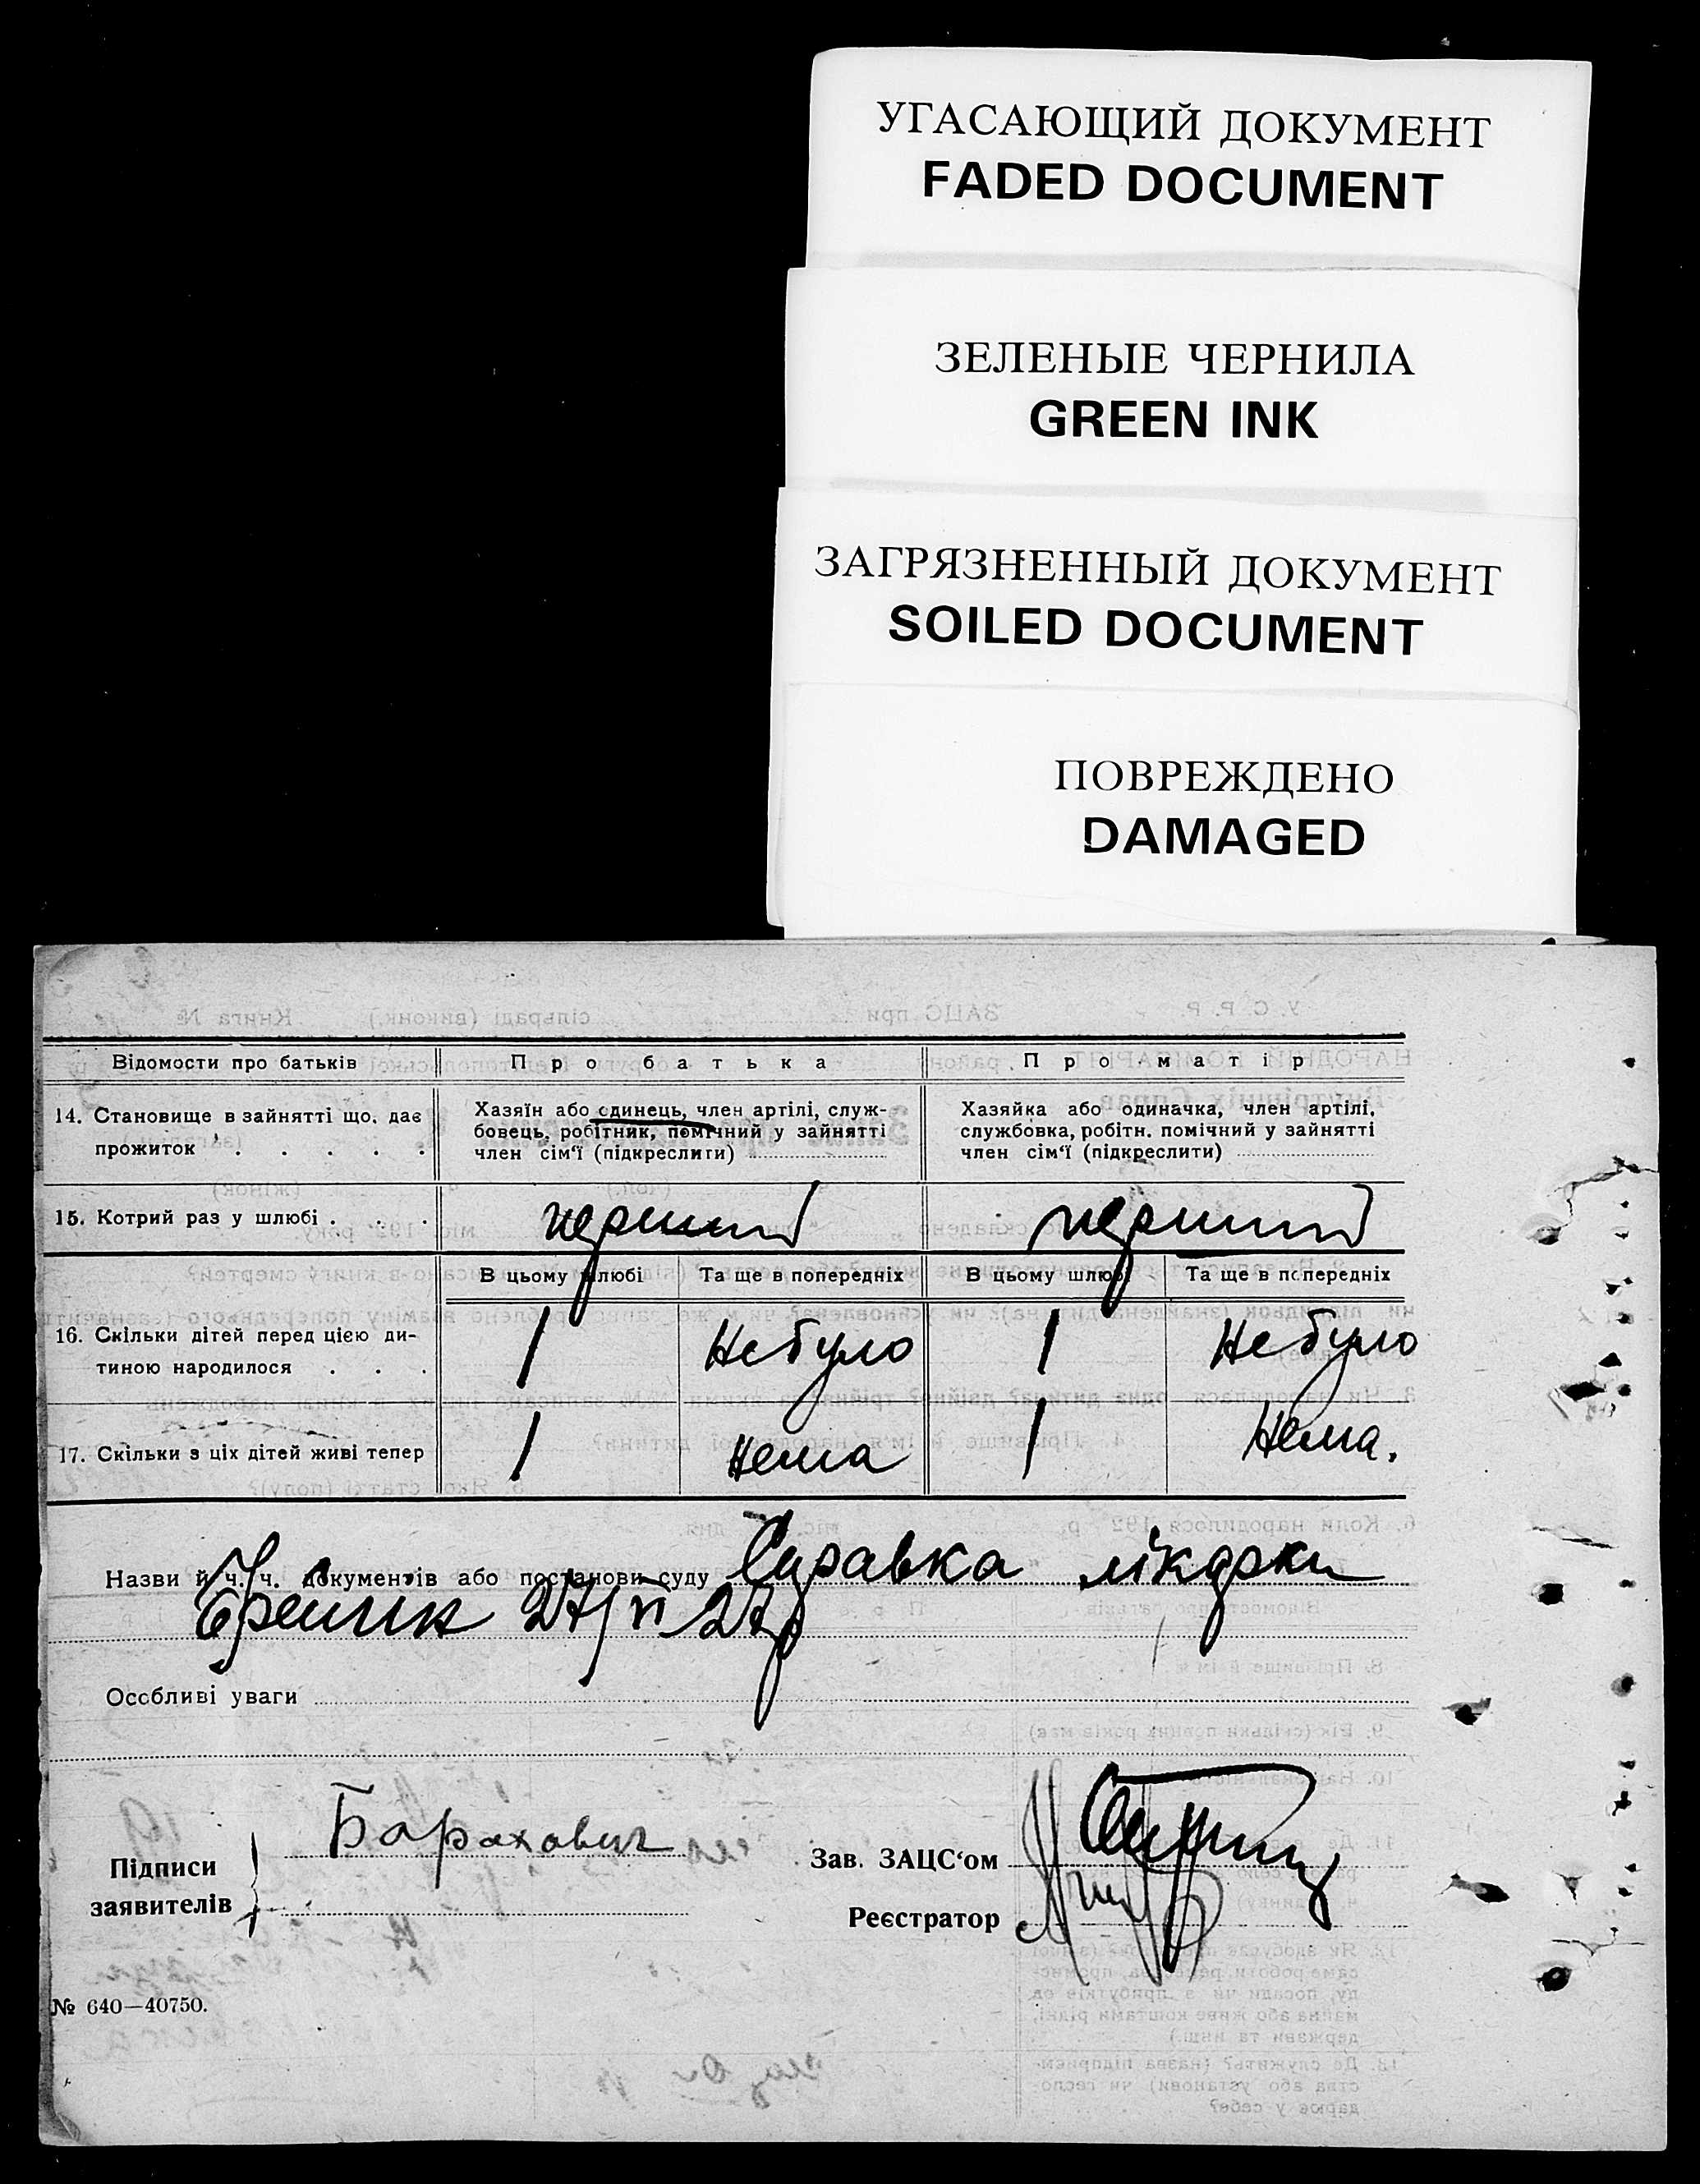 УГАСАЮЩИЙ ДОКУМЕНТ
FADED DOCUMENT
ЗЕЛЕНЫЕ ЧЕРНИЛА
GREEN INK
ЗАГРЯЗНЕННЫЙ ДОКУМЕНТ
SOILED DOCUMENT
ПОВРЕЖДЕНО
DAMAGED
Відомости про батьків Про батька Про матір
14. Становище в зайнятті що, дає прожиток . . . . .
Хазяїн або одинець, член артілі, служ-
бовець, робітник, помічний у зайнятті
член сім'ї (підкреслити)
Хазяйка або одиначка, член артілі,
службовка, робітн. помічний у зайнятті
член сім'ї (підкреслити)
15. Котрий раз у шлюбі . . . перший перший
В цьому шлюбі Та ще в попередніх В цьому шлюбі Та ще в попередніх
16. Скільки дітей перед цією ди-
тиною народилося . . . 1 Не було 1 Не було
17. Скільки з ціх дітей живі тепер 1 Нема 1 Нема.
Назви й ч. ч. документів або постанови суду Справка лікарки
27/VI 27р
Особливі уваги
Підписи
заявителів
Барахович
Зав. ЗАЦС'ом
Реєстратор
№ 640—40750.